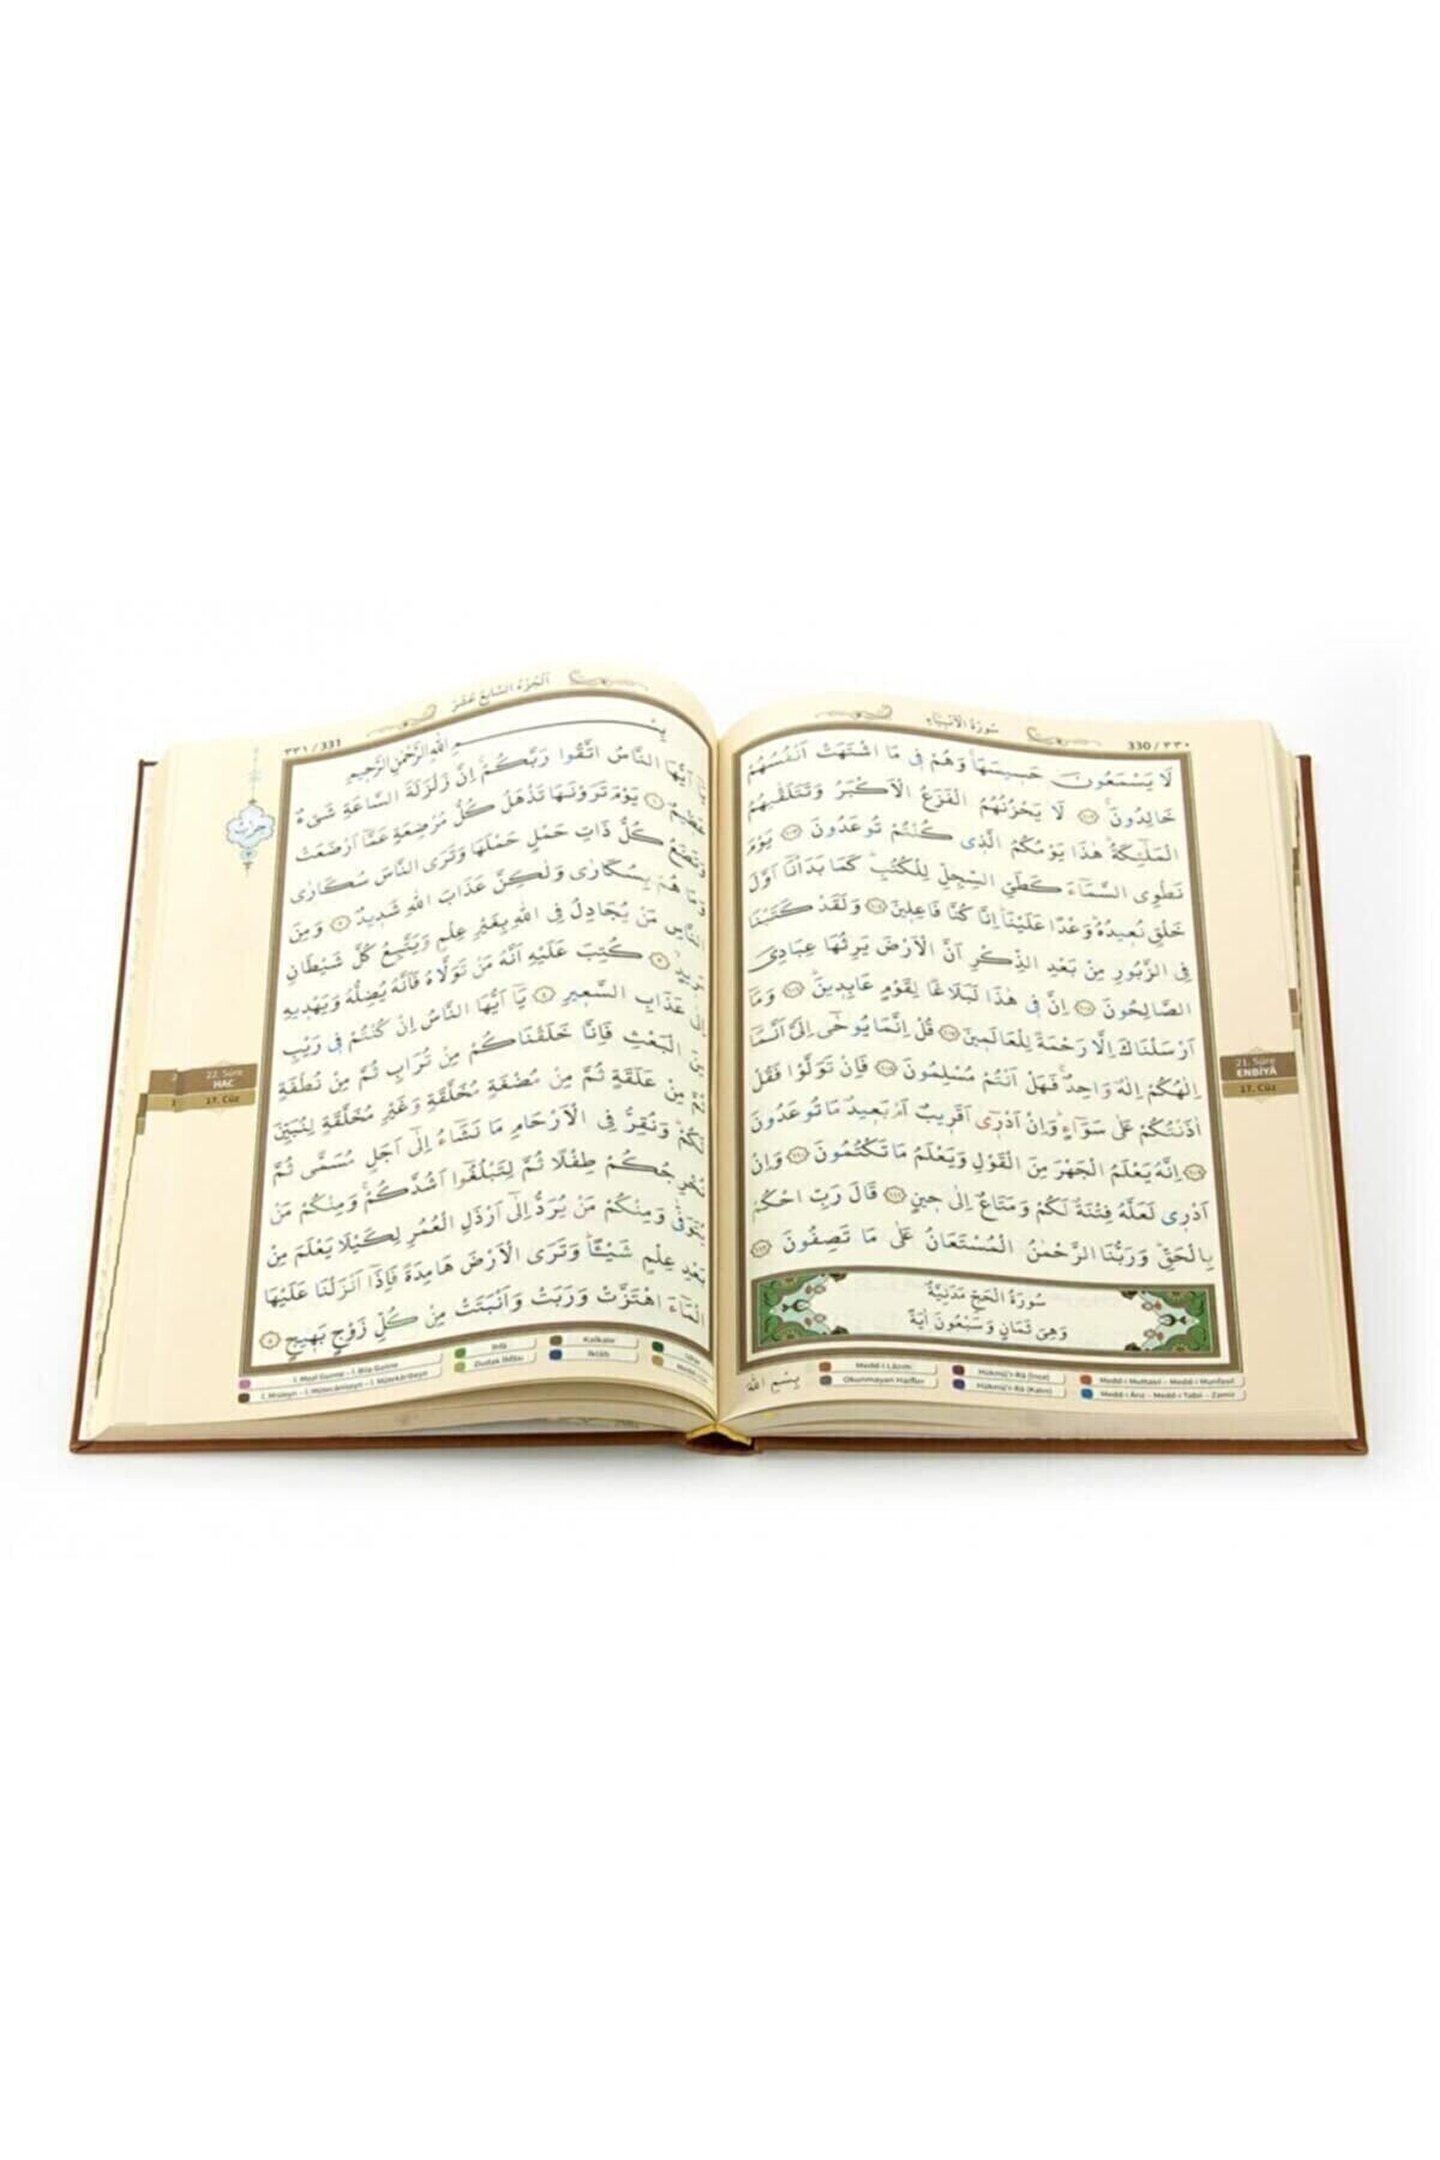 330 / ٣٣٠
سُورَةُ الْاَنْبِيَاءِ
لَا يَسْمَعُونَ حَسِيسَهَاۚ وَهُمْ فِى مَا اشْتَهَتْ اَنْفُسُهُمْ
خَالِدُونَۚ ﴿١٠٢﴾ لَا يَحْزُنُهُمُ الْفَزَعُ الْاَكْبَرُ وَتَتَلَقّٰيهُمُ
الْمَلٰٓئِكَةُۜ هٰذَا يَوْمُكُمُ الَّذِى كُنْتُمْ تُوعَدُونَ ﴿١٠٣﴾ يَوْمَ
نَطْوِى السَّمَٓاءَ كَطَىِّ السِّجِلِّ لِلْكُتُبِۜ كَمَا بَدَأْنَٓا اَوَّلَ
خَلْقٍ نُعِيدُهُۜ وَعْدًا عَلَيْنَاۜ اِنَّا كُنَّا فَاعِلِينَ ﴿١٠٤﴾ وَلَقَدْ كَتَبْنَا
فِى الزَّبُورِ مِنْ بَعْدِ الذِّكْرِ اَنَّ الْاَرْضَ يَرِثُهَا عِبَادِىَ
الصَّالِحُونَ ﴿١٠٥﴾ اِنَّ فِى هٰذَا لَبَلَاغًا لِقَوْمٍ عَابِدِينَۜ ﴿١٠٦﴾ وَمَٓا
اَرْسَلْنَاكَ اِلَّا رَحْمَةً لِلْعَالَمِينَ ﴿١٠٧﴾ قُلْ اِنَّمَا يُوحٰٓى اِلَىَّ اَنَّمَٓا
اِلٰهُكُمْ اِلٰهٌ وَاحِدٌۚ فَهَلْ اَنْتُمْ مُسْلِمُونَ ﴿١٠٨﴾ فَاِنْ تَوَلَّوْا فَقُلْ
اٰذَنْتُكُمْ عَلٰى سَوَٓاءٍۜ وَاِنْ اَدْرِٓى اَقَرِيبٌ اَمْ بَعِيدٌ مَا تُوعَدُونَ
﴿١٠٩﴾ اِنَّهُ يَعْلَمُ الْجَهْرَ مِنَ الْقَوْلِ وَيَعْلَمُ مَا تَكْتُمُونَ ﴿١١٠﴾ وَاِنْ
اَدْرِى لَعَلَّهُ فِتْنَةٌ لَكُمْ وَمَتَاعٌ اِلٰى حِينٍ ﴿١١١﴾ قَالَ رَبِّ احْكُمْ
بِالْحَقِّۜ وَرَبُّنَا الرَّحْمٰنُ الْمُسْتَعَانُ عَلٰى مَا تَصِفُونَ ﴿١١٢﴾
سُورَةُ الْحَجِّ مَدَنِيَّةٌ
وَهِىَ ثَمَانٍ وَسَبْعُونَ اٰيَةً
بِسْمِ اللّٰهِ
21. Sûre
ENBİYÂ
17. Cüz
Medd-i Lâzım
Hükmü'r-Râ (İnce)
Medd-i Muttasıl - Medd-i Munfasıl
Okunmayan Harfler
Hükmü'r-Râ (Kalın)
Medd-i Ârız - Medd-i Tabii - Zamir
٣٣١ / 331
اَلْجُزْءُ السَّابِعَ عَشَرَ
حزب
بِسْمِ اللّٰهِ الرَّحْمٰنِ الرَّحِيمِ
يَٓا اَيُّهَا النَّاسُ اتَّقُوا رَبَّكُمْۚ اِنَّ زَلْزَلَةَ السَّاعَةِ شَىْءٌ
عَظِيمٌ ﴿١﴾ يَوْمَ تَرَوْنَهَا تَذْهَلُ كُلُّ مُرْضِعَةٍ عَمَّٓا اَرْضَعَتْ
وَتَضَعُ كُلُّ ذَاتِ حَمْلٍ حَمْلَهَا وَتَرَى النَّاسَ سُكَارٰى
وَمَا هُمْ بِسُكَارٰى وَلٰكِنَّ عَذَابَ اللّٰهِ شَدِيدٌ ﴿٢﴾ وَمِنَ
النَّاسِ مَنْ يُجَادِلُ فِى اللّٰهِ بِغَيْرِ عِلْمٍ وَيَتَّبِعُ كُلَّ شَيْطَانٍ
﴿٣﴾ كُتِبَ عَلَيْهِ اَنَّهُ مَنْ تَوَلَّاهُ فَاَنَّهُ يُضِلُّهُ وَيَهْدِيهِ
اِلٰى عَذَابِ السَّعِيرِ ﴿٤﴾ يَٓا اَيُّهَا النَّاسُ اِنْ كُنْتُمْ فِى رَيْبٍ
مِنَ الْبَعْثِ فَاِنَّا خَلَقْنَاكُمْ مِنْ تُرَابٍ ثُمَّ مِنْ نُطْفَةٍ
ثُمَّ مِنْ عَلَقَةٍ ثُمَّ مِنْ مُضْغَةٍ مُخَلَّقَةٍ وَغَيْرِ مُخَلَّقَةٍ لِنُبَيِّنَ
لَكُمْۜ وَنُقِرُّ فِى الْاَرْحَامِ مَا نَشَٓاءُ اِلٰٓى اَجَلٍ مُسَمًّى ثُمَّ
نُخْرِجُكُمْ طِفْلًا ثُمَّ لِتَبْلُغُٓوا اَشُدَّكُمْۚ وَمِنْكُمْ مَنْ
يُتَوَفّٰى وَمِنْكُمْ مَنْ يُرَدُّ اِلٰٓى اَرْذَلِ الْعُمُرِ لِكَيْلَا يَعْلَمَ مِنْ
بَعْدِ عِلْمٍ شَيْـًٔاۜ وَتَرَى الْاَرْضَ هَامِدَةً فَاِذَٓا اَنْزَلْنَا عَلَيْهَا
الْمَٓاءَ اهْتَزَّتْ وَرَبَتْ وَاَنْبَتَتْ مِنْ كُلِّ زَوْجٍ بَهِيجٍ ﴿٥﴾
22. Sûre
HAC
17. Cüz
İ. Meal Gunne - İ. Bila Gunne
İhfâ
Kalkale
İzhar
İ. Misleyn - İ. Mütecâniseyn - İ. Mütekâribeyn
Dudak İhfâsı
İklâb